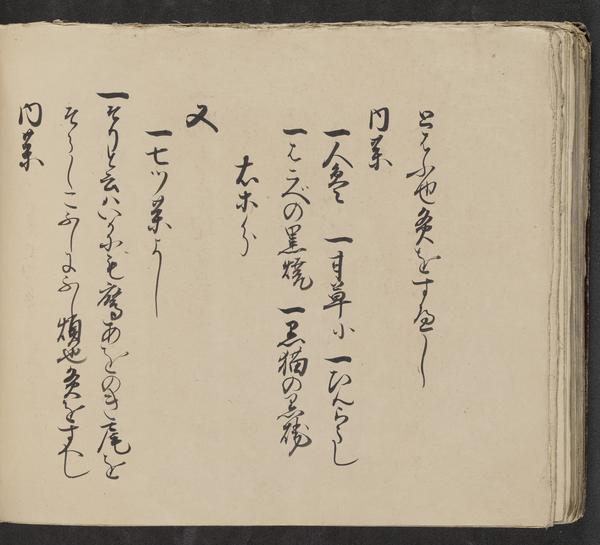 とらふ也灸をすへし
内薬
一人参 一甘草小 一ひんらうし
一はこべの黒焼 一黒猫の黒焼
右等分
又
一七ツ薬よし
一そりと云ハいかにも鷹あをのき尾を
そらしこふしにふし煩也灸をすへし
内薬